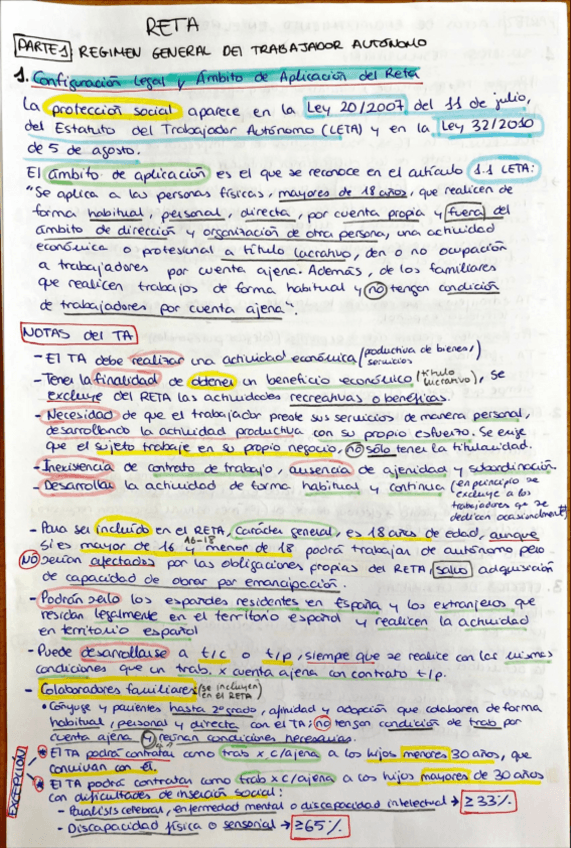 RETA
PARTE 1 REGIMEN GENERAL DEL TRABAJADOR AUTÓNOMO
1. Configuración Legal y Ámbito de Aplicación del Reta
La protección social aparece en la Ley 20/2007 del 11 de julio,
del Estatuto del Trabajador Autónomo (LETA) y en la Ley 32/2010
de 5 de agosto.
El ámbito de aplicación es el que se reconoce en el artículo 1.1 LETA:
"Se aplica a las personas físicas, mayores de 18 años, que realicen de
forma habitual, personal, directa, por cuenta propia y fuera del
ámbito de dirección y organización de otra persona, una actividad
económica o profesional a título lucrativo, den o no ocupación
a trabajadores por cuenta ajena. Además, de los familiares
que realicen trabajos de forma habitual y no tengan condición
de trabajadores por cuenta ajena".
NOTAS del TA
- El TA debe realizar una actividad económica (productiva de bienes, servicios)
- Tener la finalidad de obtener un beneficio económico (título lucrativo), se
excluye del RETA las actividades recreativas o benéficas.
- Necesidad de que el trabajador preste sus servicios de manera personal,
desarrollando la actividad productiva con su propio esfuerzo. Se exige
que el sujeto trabaje en su propio negocio, no sólo tener la titularidad.
- Inexistencia de contrato de trabajo, ausencia de ajenidad y subordinación.
- Desarrollar la actividad de forma habitual y continua (en principio se
excluye a los
trabajadores que se
dedican ocasionalmente)
- Para ser incluido en el RETA, carácter general, es 18 años de edad, aunque
si es mayor de 16 y menor de 18 16-18 podrá trabajar de autónomo pero
NO serían afectados por las obligaciones propias del RETA, salvo adquisición
de capacidad de obrar por emancipación.
- Podrán serlo los españoles residentes en España y los extranjeros que
residan legalmente en el territorio español y realicen la actividad
en territorio español
- Puede desarrollarse a t/c o t/p, siempre que se realice con las mismas
condiciones que un trab. x cuenta ajena con contrato t/p.
- Colaboradores familiares (se incluyen en el RETA)
• Cónyuge y parientes hasta 2º grado, afinidad y adopción que colaboren de forma
habitual, personal y directa con el TA; no tengan condición de trab por
cuenta ajena y reúnan condiciones necesarias.
EXCEPCIÓN
* El TA podrá contratar como trab x c/ajena a los hijos menores 30 años, que
convivan con él.
* El TA podrá contratar como trab x c/ajena a los hijos mayores de 30 años
con dificultades de inserción social:
- Parálisis cerebral, enfermedad mental o discapacidad intelectual → ≥33%.
- Discapacidad física o sensorial → ≥65%.